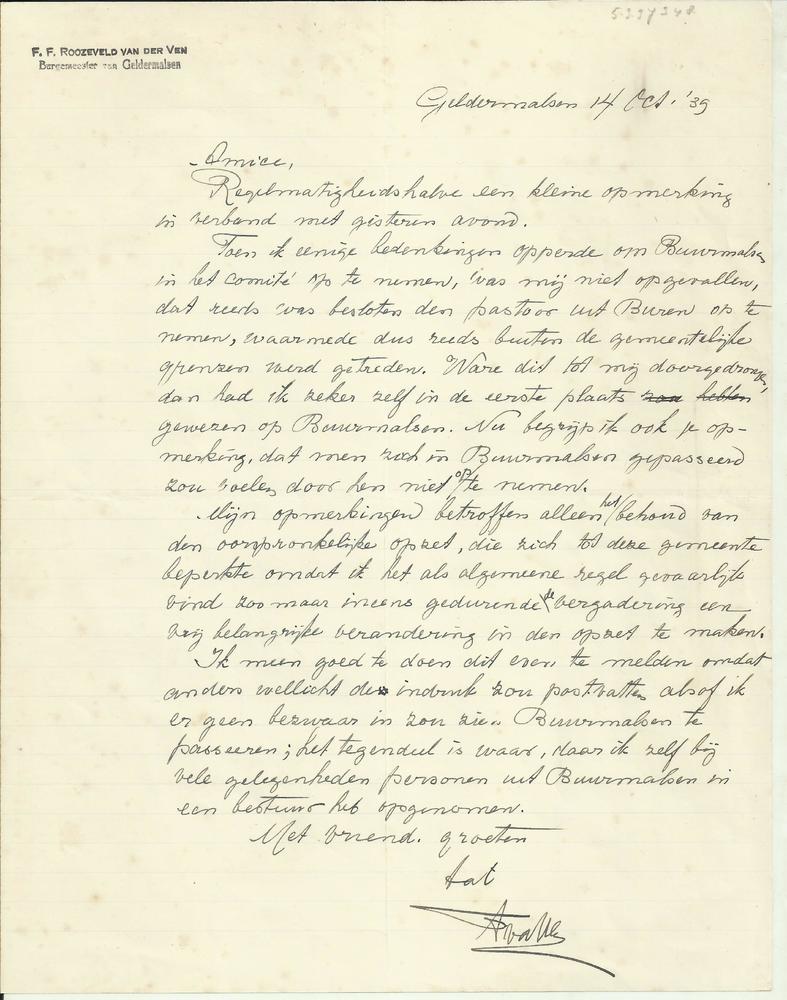 F. F. ROOZEVELD VAN DER VEN
Burgemeester van Geldermalsen
Geldermalsen 14 Oct. '39
Amice,
Regelmatigheidshalve een kleine opmerking
in verband met gisteren avond.
Toen ik eenige bedenkingen opperde om Buurmalsen
in het comité op te nemen, was mij niet opgevallen,
dat reeds was besloten den pastoor uit Buren op te
nemen, waarmede dus reeds buiten de gemeentelijke
grenzen werd getreden. Ware dit tot mij doorgedrongen,
dan had ik zeker zelf in de eerste plaats zou hebben
gewezen op Buurmalsen. Nu begrijp ik ook je op-
merking, dat men zich in Buurmalsen gepasseerd
zou voelen door hen niet op te nemen.
Mijn opmerkingen betroffen alleen het behoud van
den oorspronkelijke opzet, die zich tot deze gemeente
beperkte omdat ik het als algemeene regel gevaarlijk
vind zoo maar ineens gedurende de vergadering een
vrij belangrijke verandering in den opzet te maken.
Ik meen goed te doen dit even te melden omdat
anders wellicht de indruk zou postvatten alsof ik
er geen bezwaar in zou zien Buurmalsen te
passeeren; het tegendeel is waar, daar ik zelf bij
vele gelegenheden personen uit Buurmalsen in
een bestuur heb opgenomen.
Met vriend. groeten
tat